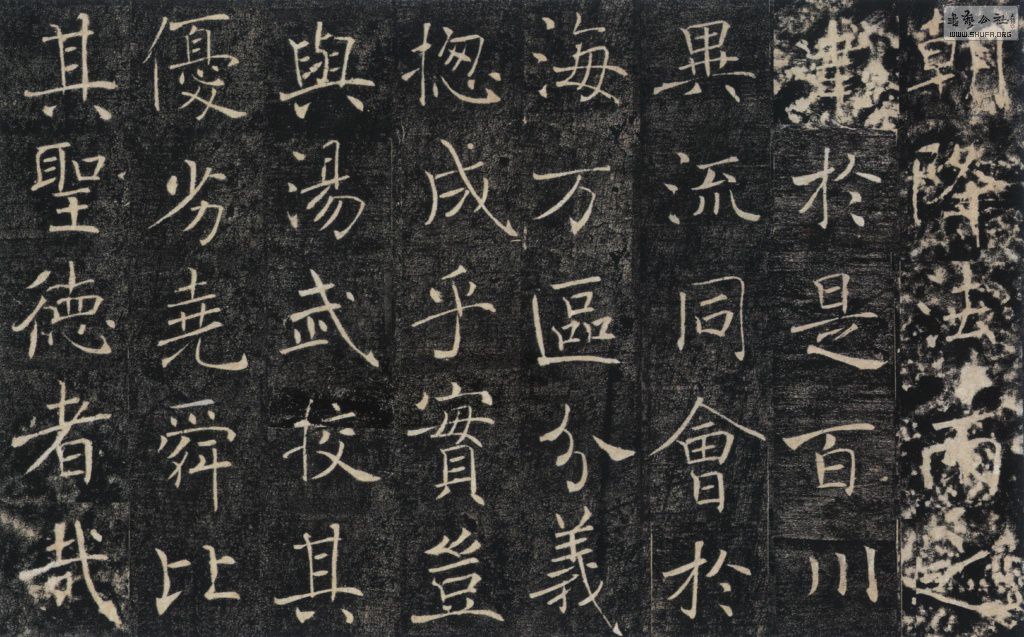 朝降法雨之
津於是百川
異流同會於
海万區分義
揔成乎實豈
與湯武校其
優劣堯舜比
其聖徳者哉
WWW.SHUFA.ORG